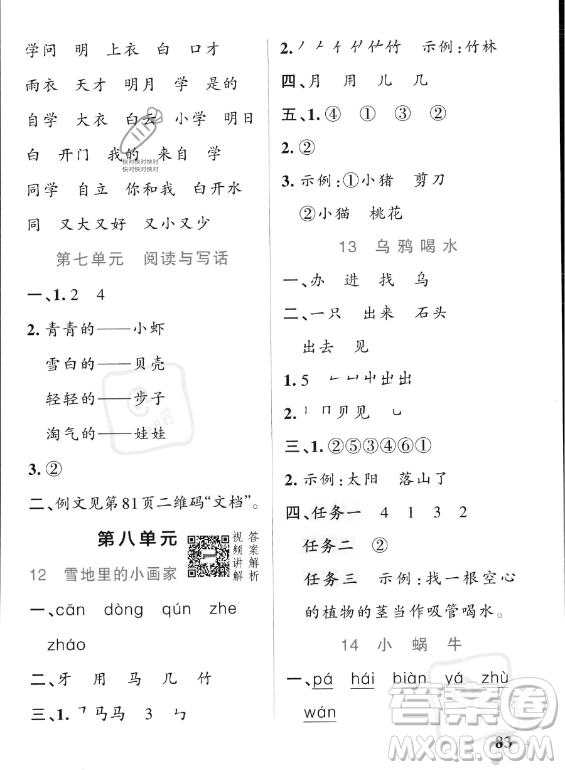 学问 明 上衣 白 口才
雨衣 天才 明月 学 是的
自学 大衣 白云 小学 明日
白 开门 我的 来自 学
快对快对快对
快对快对快对
同学 自立 你和我 白开水
同 又大又好 又小又少
第七单元 阅读与写话
一、1.2 4
2.青青的——小虾
雪白的——贝壳
轻轻的——步子
淘气的——娃娃
3.②
二、例文见第81页二维码“文档”。
第八单元
视频讲解
答案解析
12 雪地里的小画家
一、cān dòng qún zhe
zháo
二、牙 用 马 几 竹
三、1.㇕马马 3 ㄣ
2.丿𠂉竹 示例:竹林
四、月 用 儿 几
五、1.④ ① ③ ②
2.②
3.示例:①小猪 剪刀
②小猫 桃花
13 乌鸦喝水
一、办 进 找 乌
二、一只 出来 石头
出去 见
1.5 ㇗凵屮出出
2.丨冂贝见 乚
三、1.②⑤③④⑥①
2.示例:太阳 落山了
四、任务一 4 1 3 2
任务二 ②
任务三 示例:找一根空心
的植物的茎当作吸管喝水。
14 小蜗牛
一、pá hái biàn yá zhù
wán
83
答案圈
MXQE.COM